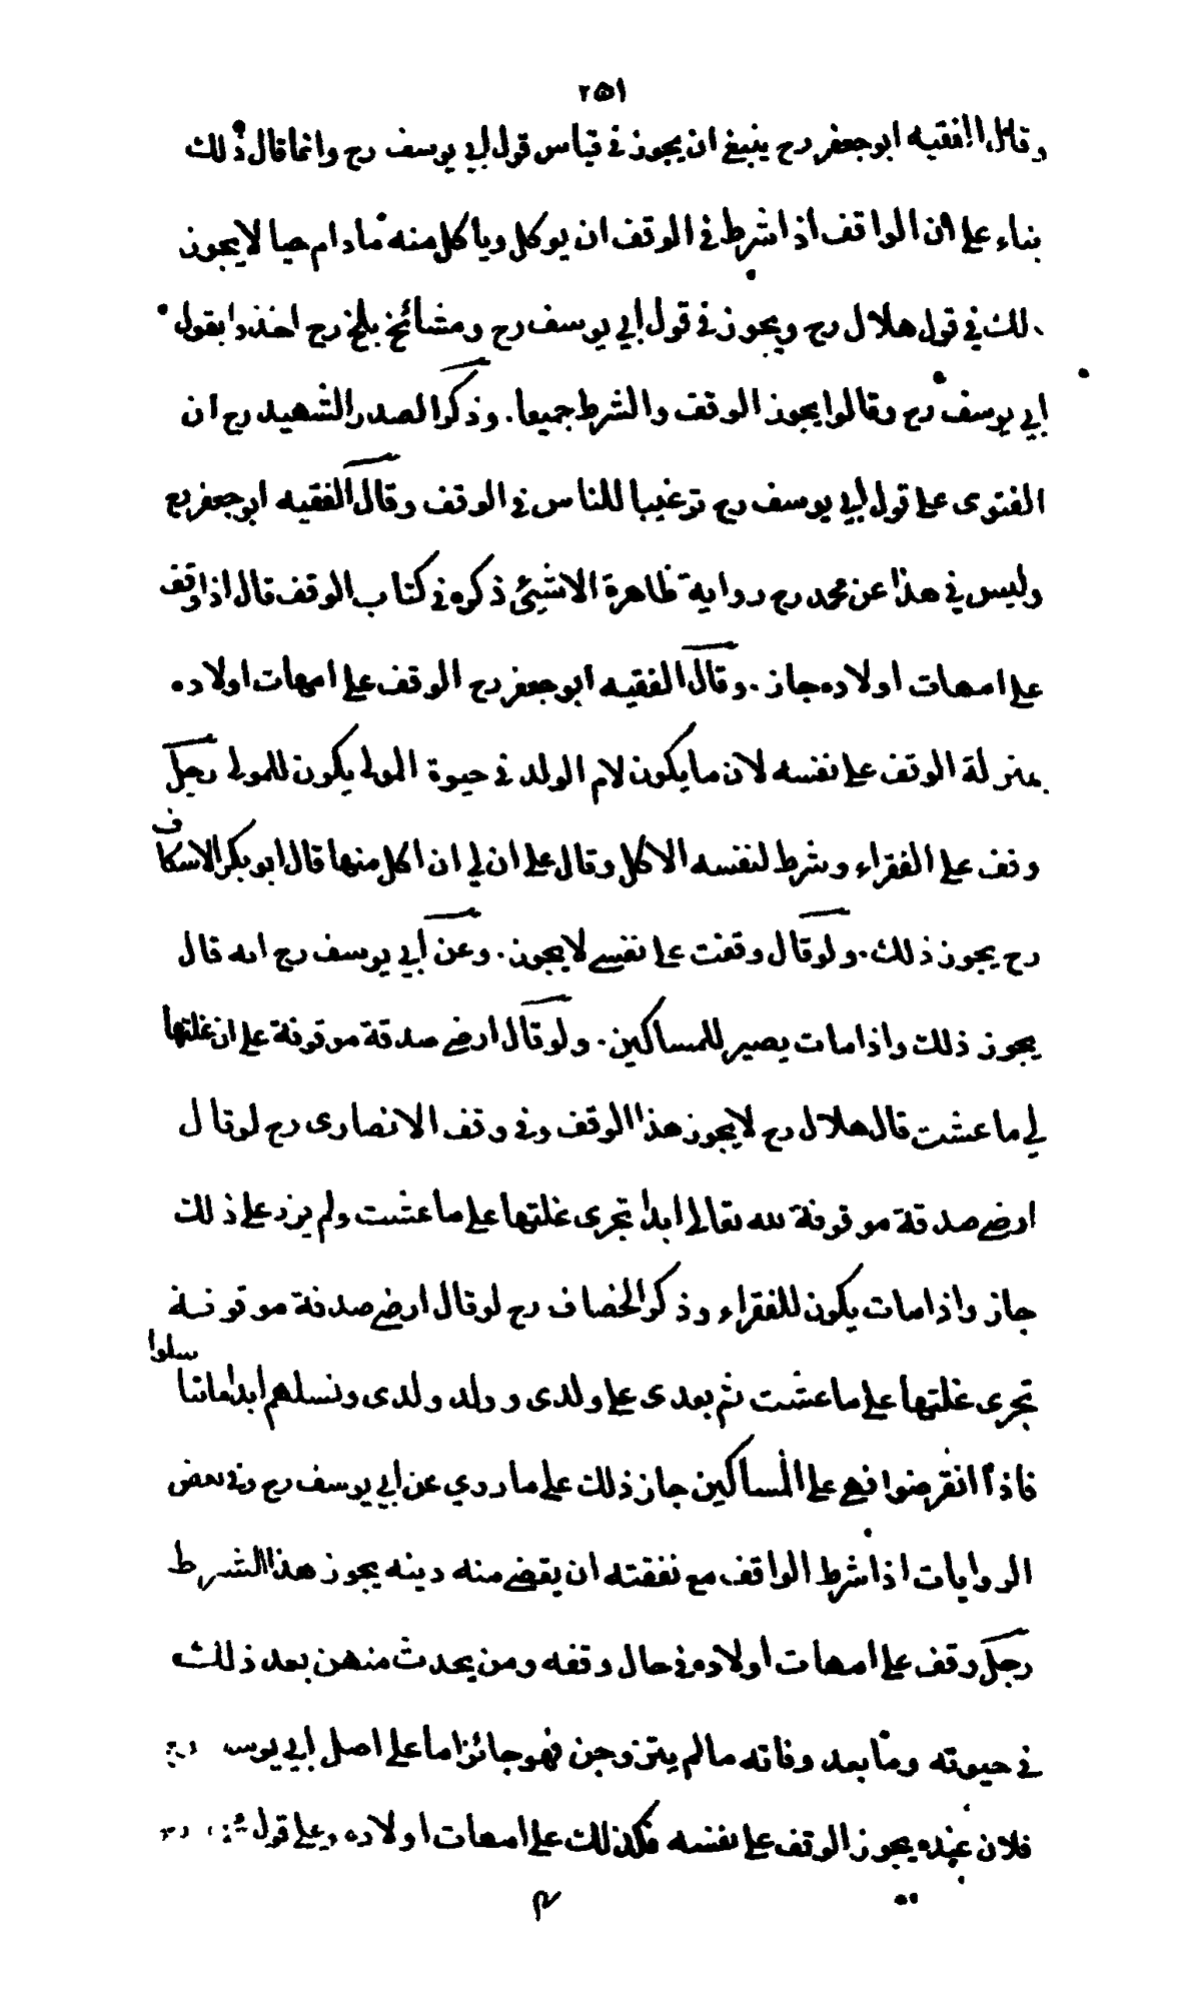 ٢٥١
وقال الفقيه ابو جعفر رح ينبغي ان يجوز في قياس قول ابي يوسف رح وانما قال ذلك
بناء على ان الواقف اذا شرط في الوقف ان يوكل وياكل منه ما دام حيا لا يجوز
ذلك في قول هلال رح ويجوز في قول ابي يوسف رح ومشائخ بلخ رح اخذوا بقول
ابي يوسف رح وقالوا يجوز الوقف والشرط جميعا . وذكر الصدر الشهيد رح ان
الفتوى على قول ابي يوسف رح ترغيبا للناس في الوقف وقال الفقيه ابو جعفر رح
وليس في هذا عن محمد رح رواية ظاهرة الا شيئ ذكره في كتاب الوقف قال اذا وقف
على امهات اولاده جاز . وقال الفقيه ابو جعفر رح الوقف على امهات اولاده
بمنزلة الوقف على نفسه لان ما يكون لام الولد في حيوة المولى يكون للمولى رجل
وقف على الفقراء وشرط لنفسه الاكل وقال على ان لي ان اكل منها قال ابو بكر الاسكاف
رح يجوز ذلك . ولو قال وقفت على نفسي لا يجوز . وعن ابي يوسف رح انه قال
يجوز ذلك واذا مات يصير للمساكين . ولو قال ارضي صدقة موقوفة على ان غلتها
لي ما عشت قال هلال رح لا يجوز هذا الوقف وفي وقف الانصارى رح لو قال
ارضي صدقة موقوفة لله تعالى ابدا تجرى غلتها على ما عشت ولم يزد على ذلك
جاز واذا مات يكون للفقراء وذكر الخصاف رح لو قال ارضي صدقة موقوفة
تجرى غلتها على ما عشت ثم بعدى على ولدى وولد ولدى ونسلهم ابدا ما تناسلوا
فاذا انقرضوا فهي على المساكين جاز ذلك على ما روي عن ابي يوسف رح وفي بعض
الروايات اذا شرط الواقف مع نفقته ان يقضي منه دينه يجوز هذا الشرط
رجل وقف على امهات اولاده في حال وقفه ومن يحدث منهن بعد ذلك
في حيوته وما بعد وفاته ما لم يتزوجن فهو جائز اما على اصل ابي يوسف رح
فلان عنده يجوز الوقف على نفسه فكذلك على امهات اولاده وعلى قول